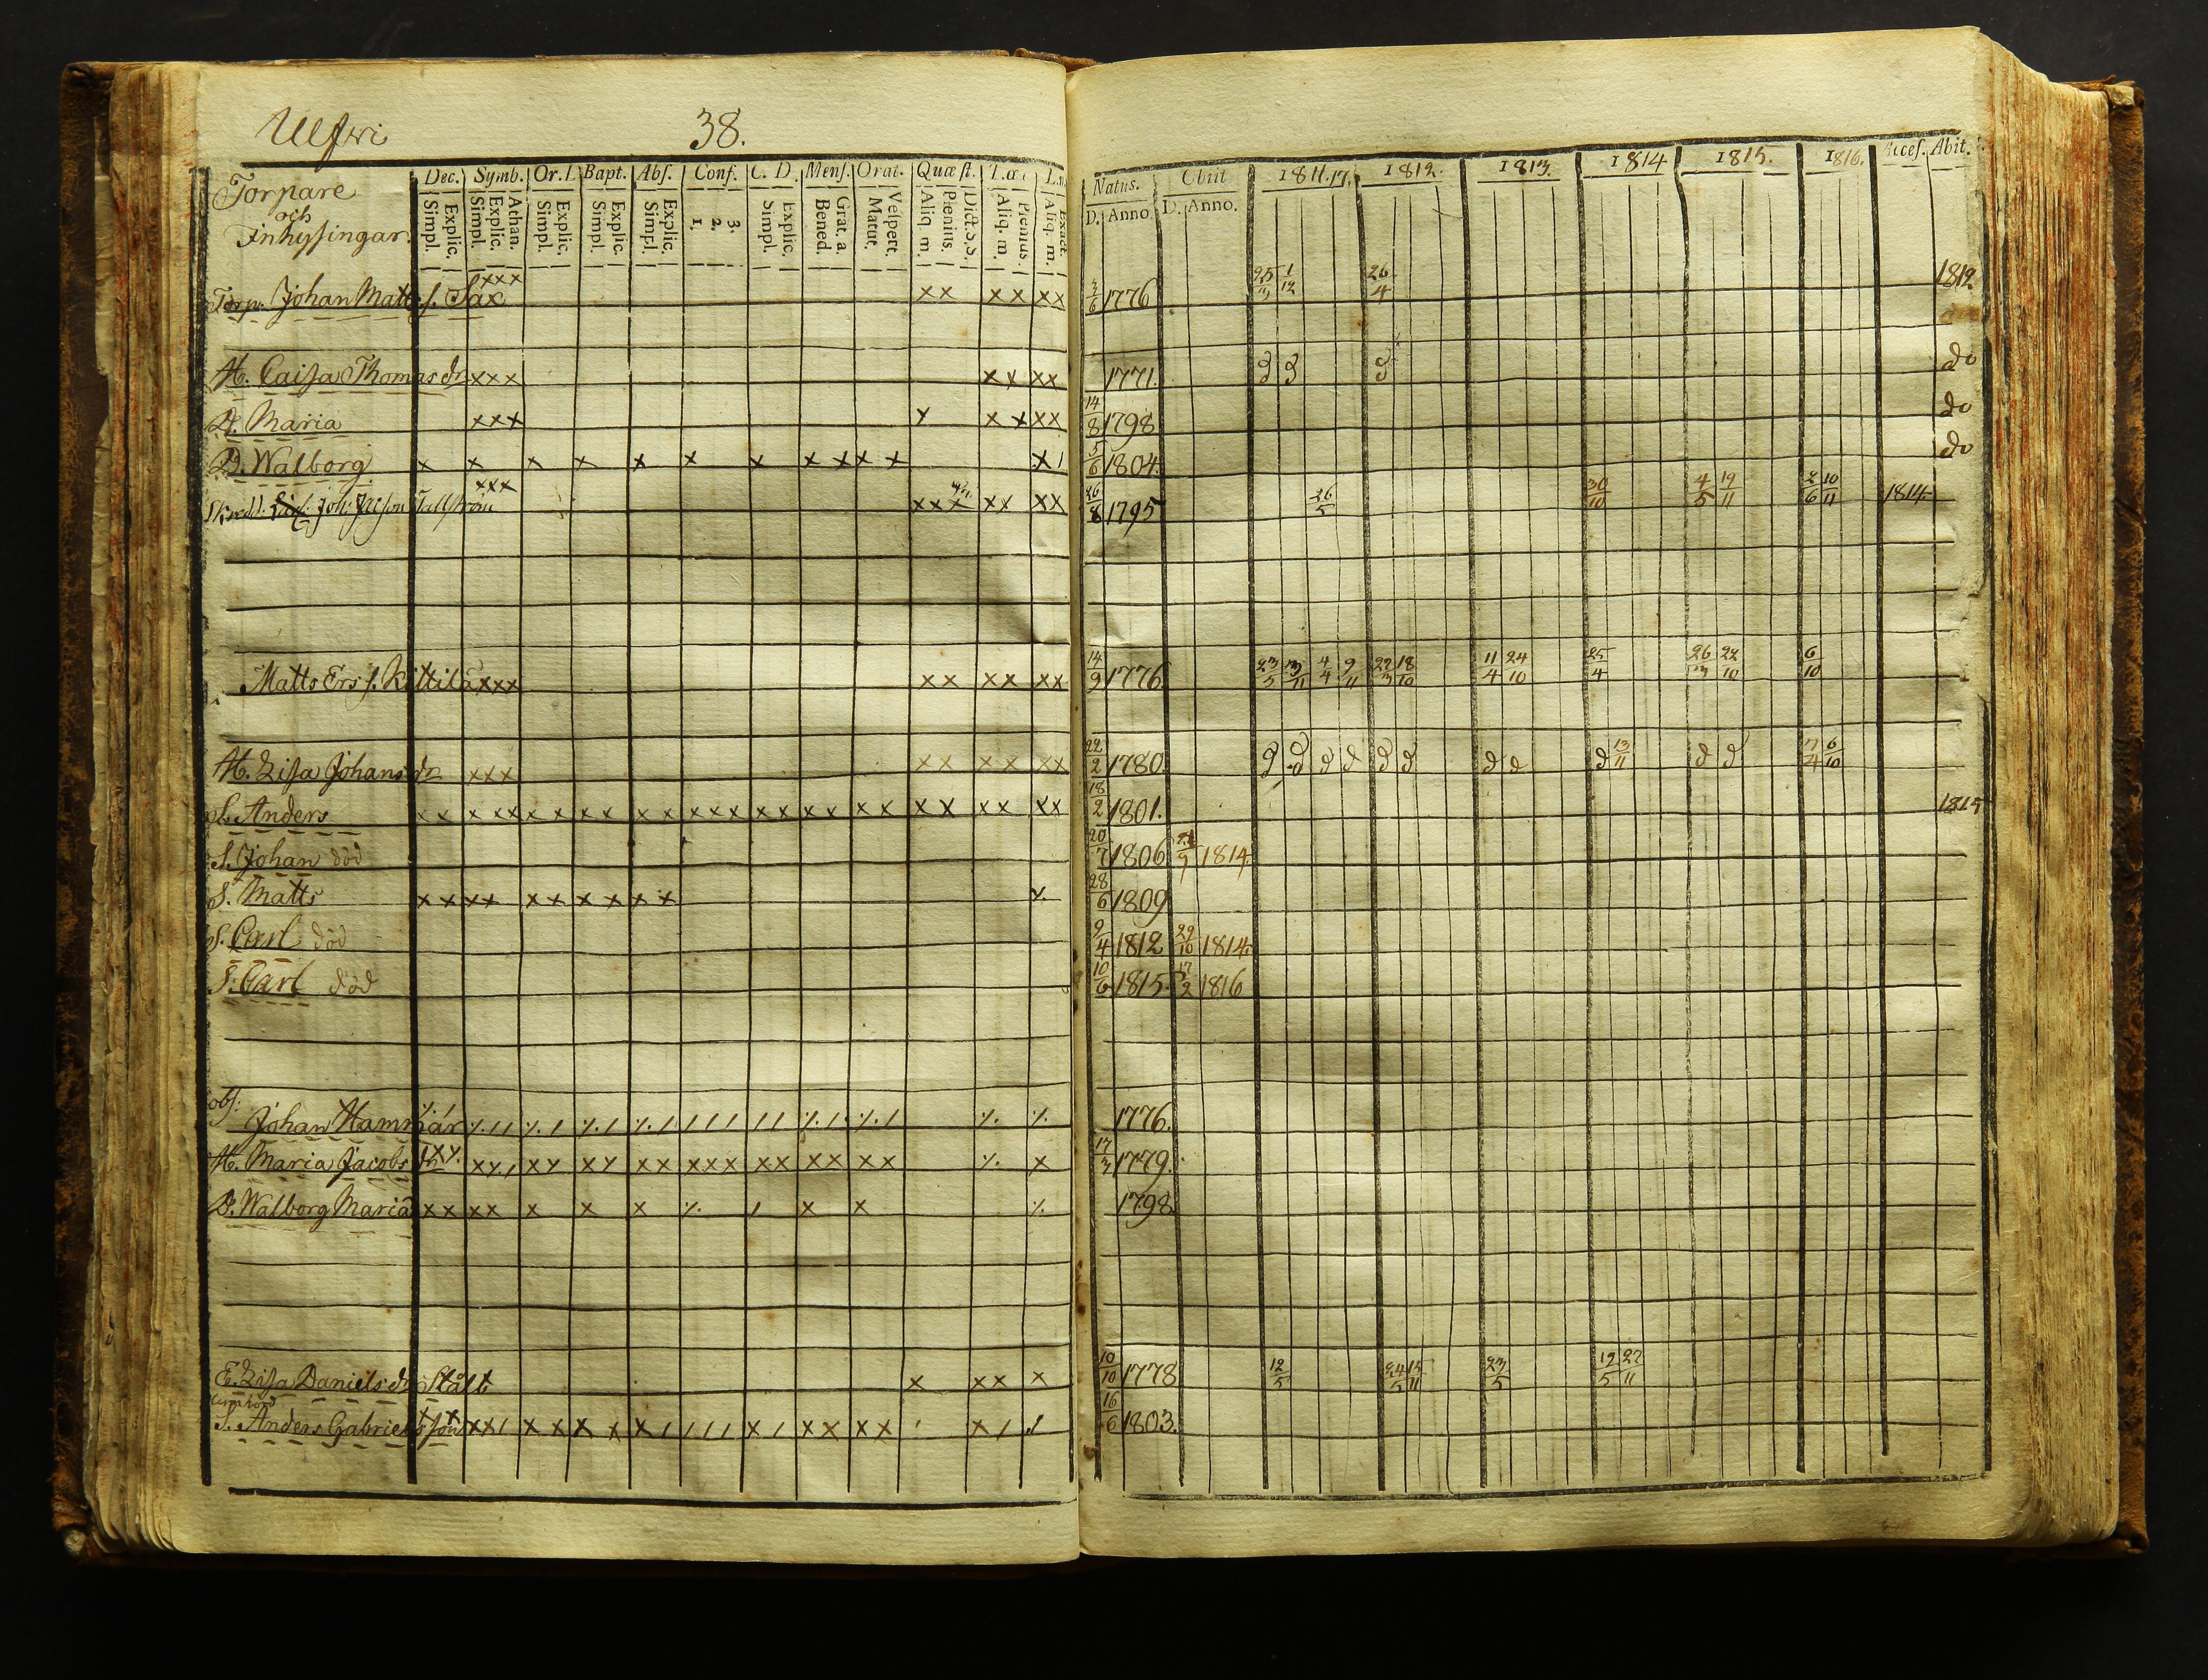 38.
Torpare
och
Inhysingar.
Dec. Symb. Or. D. Bapt. Abs. Conf. C. D. Mens. Orat. Quæst.
Explic. Simpl. Athan. Explic. Simpl. Explic. Simpl. Explic. Simpl. Explic. Simpl. 3. 2. 1. Explic. Simpl. Grat. a. Bened. Vespert. Matut. Dict. S. S. Plenius. Aliq. m. Plenius. Aliq. m. Exact. Aliq. m.
Natus. Obiit 1811.17. 1812. 1813. 1814 1815. 1816. Acces. Abit.
D. Anno. D. Anno.
Torp. Johan Matts s. Sax xxx xx xx xx 3/6 1776 25/3 1/12 26/4 1812
H. Caisa Thomas dr xxx xx xx 1771. do
D. Maria xxx x xx xx 14/8 1798 do
D. Walborg x x x x x x x x x x x x / 5/6 1804. do
Skredd. Joh: Tallström xxx xxx xx xx 26/8 1795 26/5 30/10 4/5 19/11 2/6 10/11 1814
Matts Ers s. Kittilä xxx xx xx xx 14/9 1776 23/5 3/11 4/4 9/11 22/3 18/10 11/4 24/10 25/4 26/3 22/10 6/10
H. Lisa Johans dr xxx xx xx xx 22/2 1780. d d d d d d d d d 13/11 d d 7/4 6/10
S. Anders xx xxx xx xx xx xxx xx xx xx xx xx xx 18/2 1801. 1815
S. Johan död 20/7 1806 1814.
S. Matts xx xx xx xx xx x. 28/6 1809
S. Carl död 9/4 1812 29/10 1814.
S. Carl död 10/6 1815. 17/2 1816
obs:
Johan Hammar 1776.
H. Maria Jacobs dr xx xx xx xx xxx xx xx xx x 17/3 1779.
D. Walborg Maria xx xx x x x x x 1798
E. Lisa Daniels dr Stålt x xx x 10/10 1778 12/5 24/5 15/11 23/5 19/5 22/11
S. Anders Gabriels son xx/ xx xx x/ /// x/ xx xx x/ 16/6 1803.